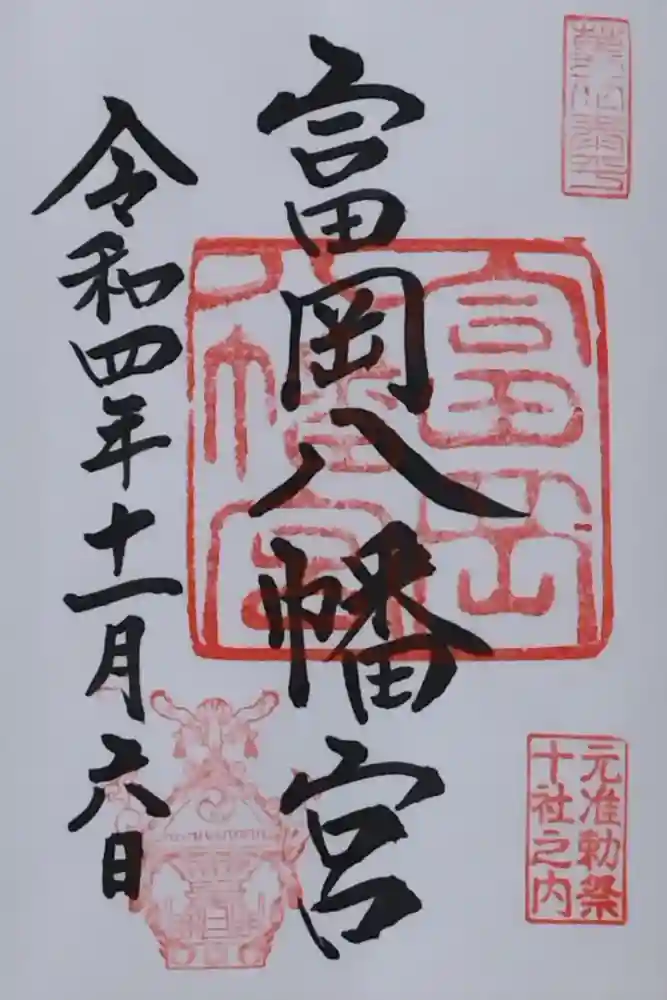 富岡八幡宮
富岡八幡宮
元准勅祭
十社之内
令和四年十一月六日